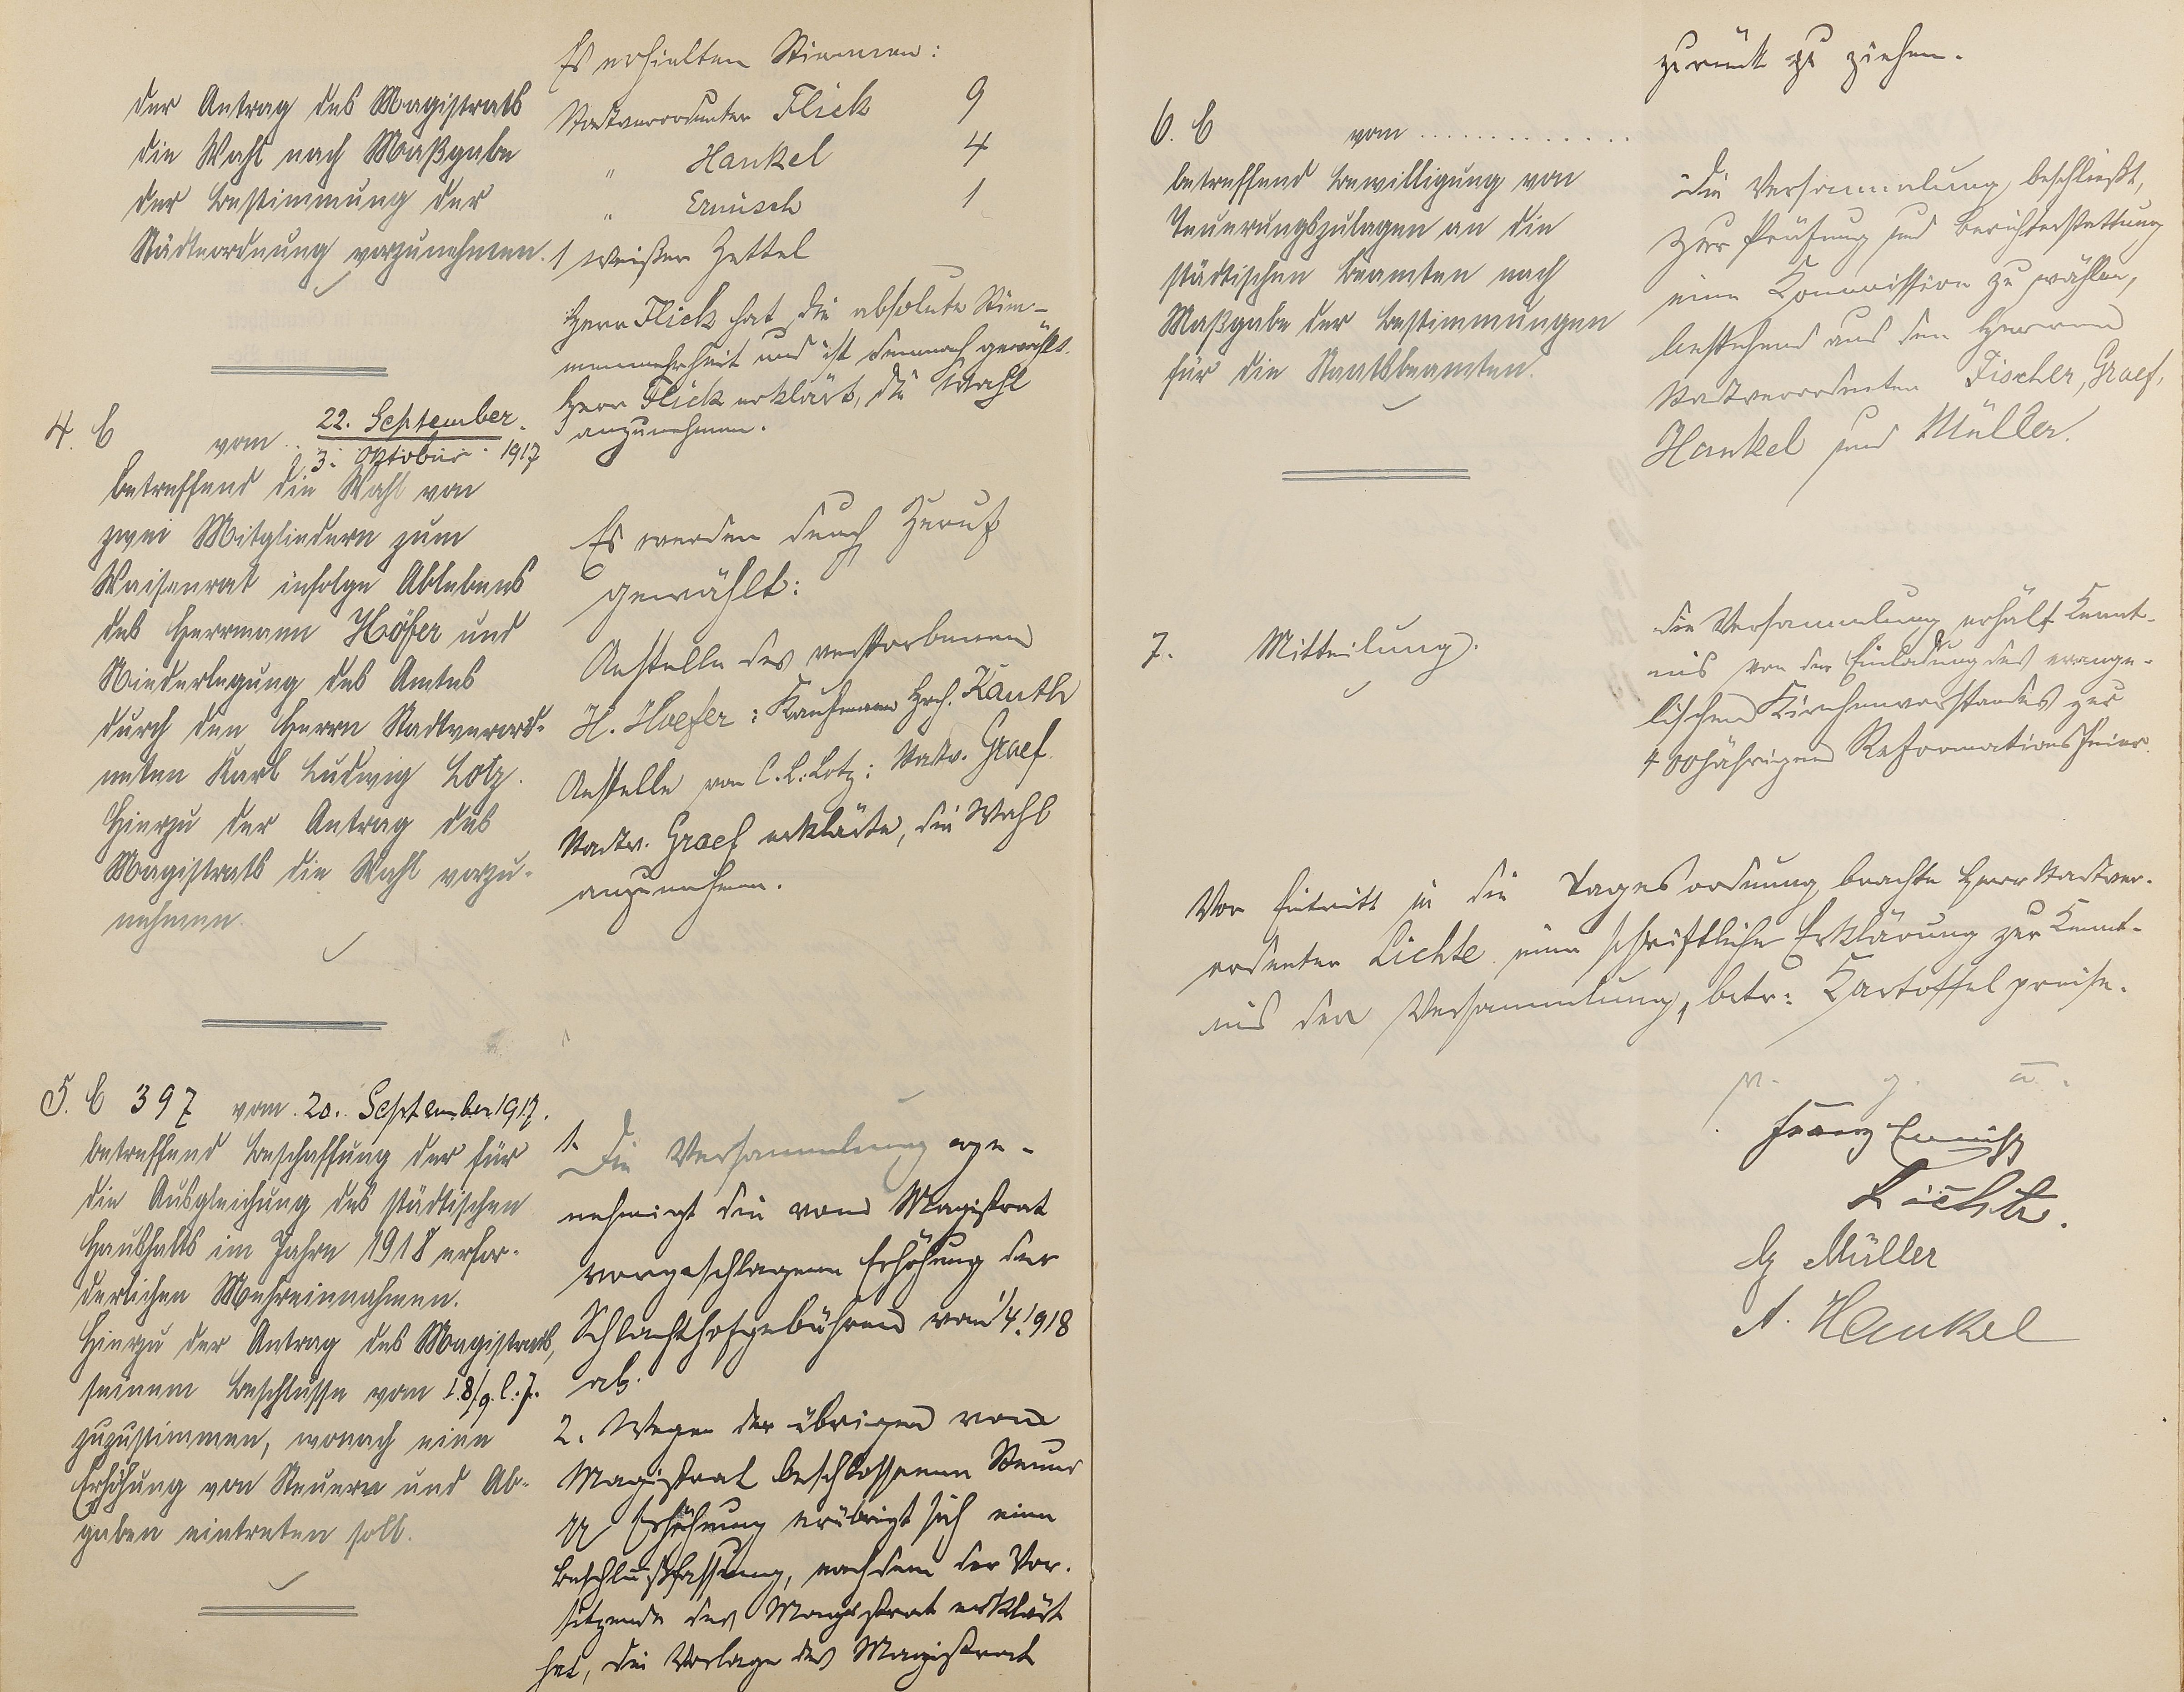 der Antrag des Magistrats
die Wahl nach Maßgabe
der Bestimmung der
Städteordnung vorzunehmen.
Es erhielten Stimmen:
Stadtverordneter Flick 9
" Hankel 4
" Ernüsch 1
1 weißer Zettel
Herr Flick hat die absolute Stim-
menmehrheit und ist demnach gewählt.
Herr Flick erklärt, die Wahl
anzunehmen.
4. C vom 22. September
3. Oktober 1917
betreffend die Wahl von
zwei Mitgliedern zum
Waisenrat infolge Ablebens
des Herrmann Höfer und
Niederlegung des Amtes
durch den Herrn Stadtverord-
neten Karl Ludwig Lotz.
Hierzu der Antrag des
Magistrats die Wahl vorzu-
nehmen.
Es werden durch Zuruf
gewählt:
Anstelle des verstorbenen
H. Hoefer: Kaufmann Hrch. Kauth
Anstelle von C. L. Lotz: Stadtv. Graef.
Stadtv. Graef erklärte, die Wahl
anzunehmen.
5. C 397 vom 20. September 1917.
betreffend Beschaffung der für
die Ausgleichung des städtischen
Haushalts im Jahre 1918 erfor-
derlichen Mehreinnahmen.
Hierzu der Antrag des Magistrats,
seinem Beschlusse vom 18/9. l. J.
zuzustimmen, wonach eine
Erhöhung von Steuern und Ab-
gaben eintreten soll.
1. Die Versammlung ge-
nehmigt die vom Magistrat
vorgeschlagene Erhöhung der
Schlachthofgebühren vom 1/4. 1918
ab.
2. Wegen der übrigen vom
Magistrat beschlossenen Steuer
pp Erhöhung erübrigt sich eine
Beschlußfassung, nachdem der Vor-
sitzende des Magistrat erklärt
hat, die Vorlage des Magistrat
zurück zu ziehen.
6. C vom .............
betreffend Bewilligung von
Teuerungszulagen an die
städtischen Beamten nach
Maßgabe der Bestimmungen
für die Staatsbeamten.
Die Versammlung beschließt,
zur Prüfung und Berichterstattung
eine Kommission zu wählen,
bestehend aus den Herren
Stadtverordneten Fischer, Graef,
Hankel und Müller.
7. Mitteilung.
Die Versammlung erhält Kennt-
nis von der Einladung des evange-
lischen Kirchenvorstandes zur
400jährigen Reformationsfeier.
Vor Eintritt in die Tagesordnung brachte Herr Stadtver-
ordneter Lichte eine schriftliche Erklärung zur Kennt-
nis der Versammlung, betr: Kartoffelpreise.
v. g. u.
Franz Ernüsch
Lichte.
Müller
A. Hankel